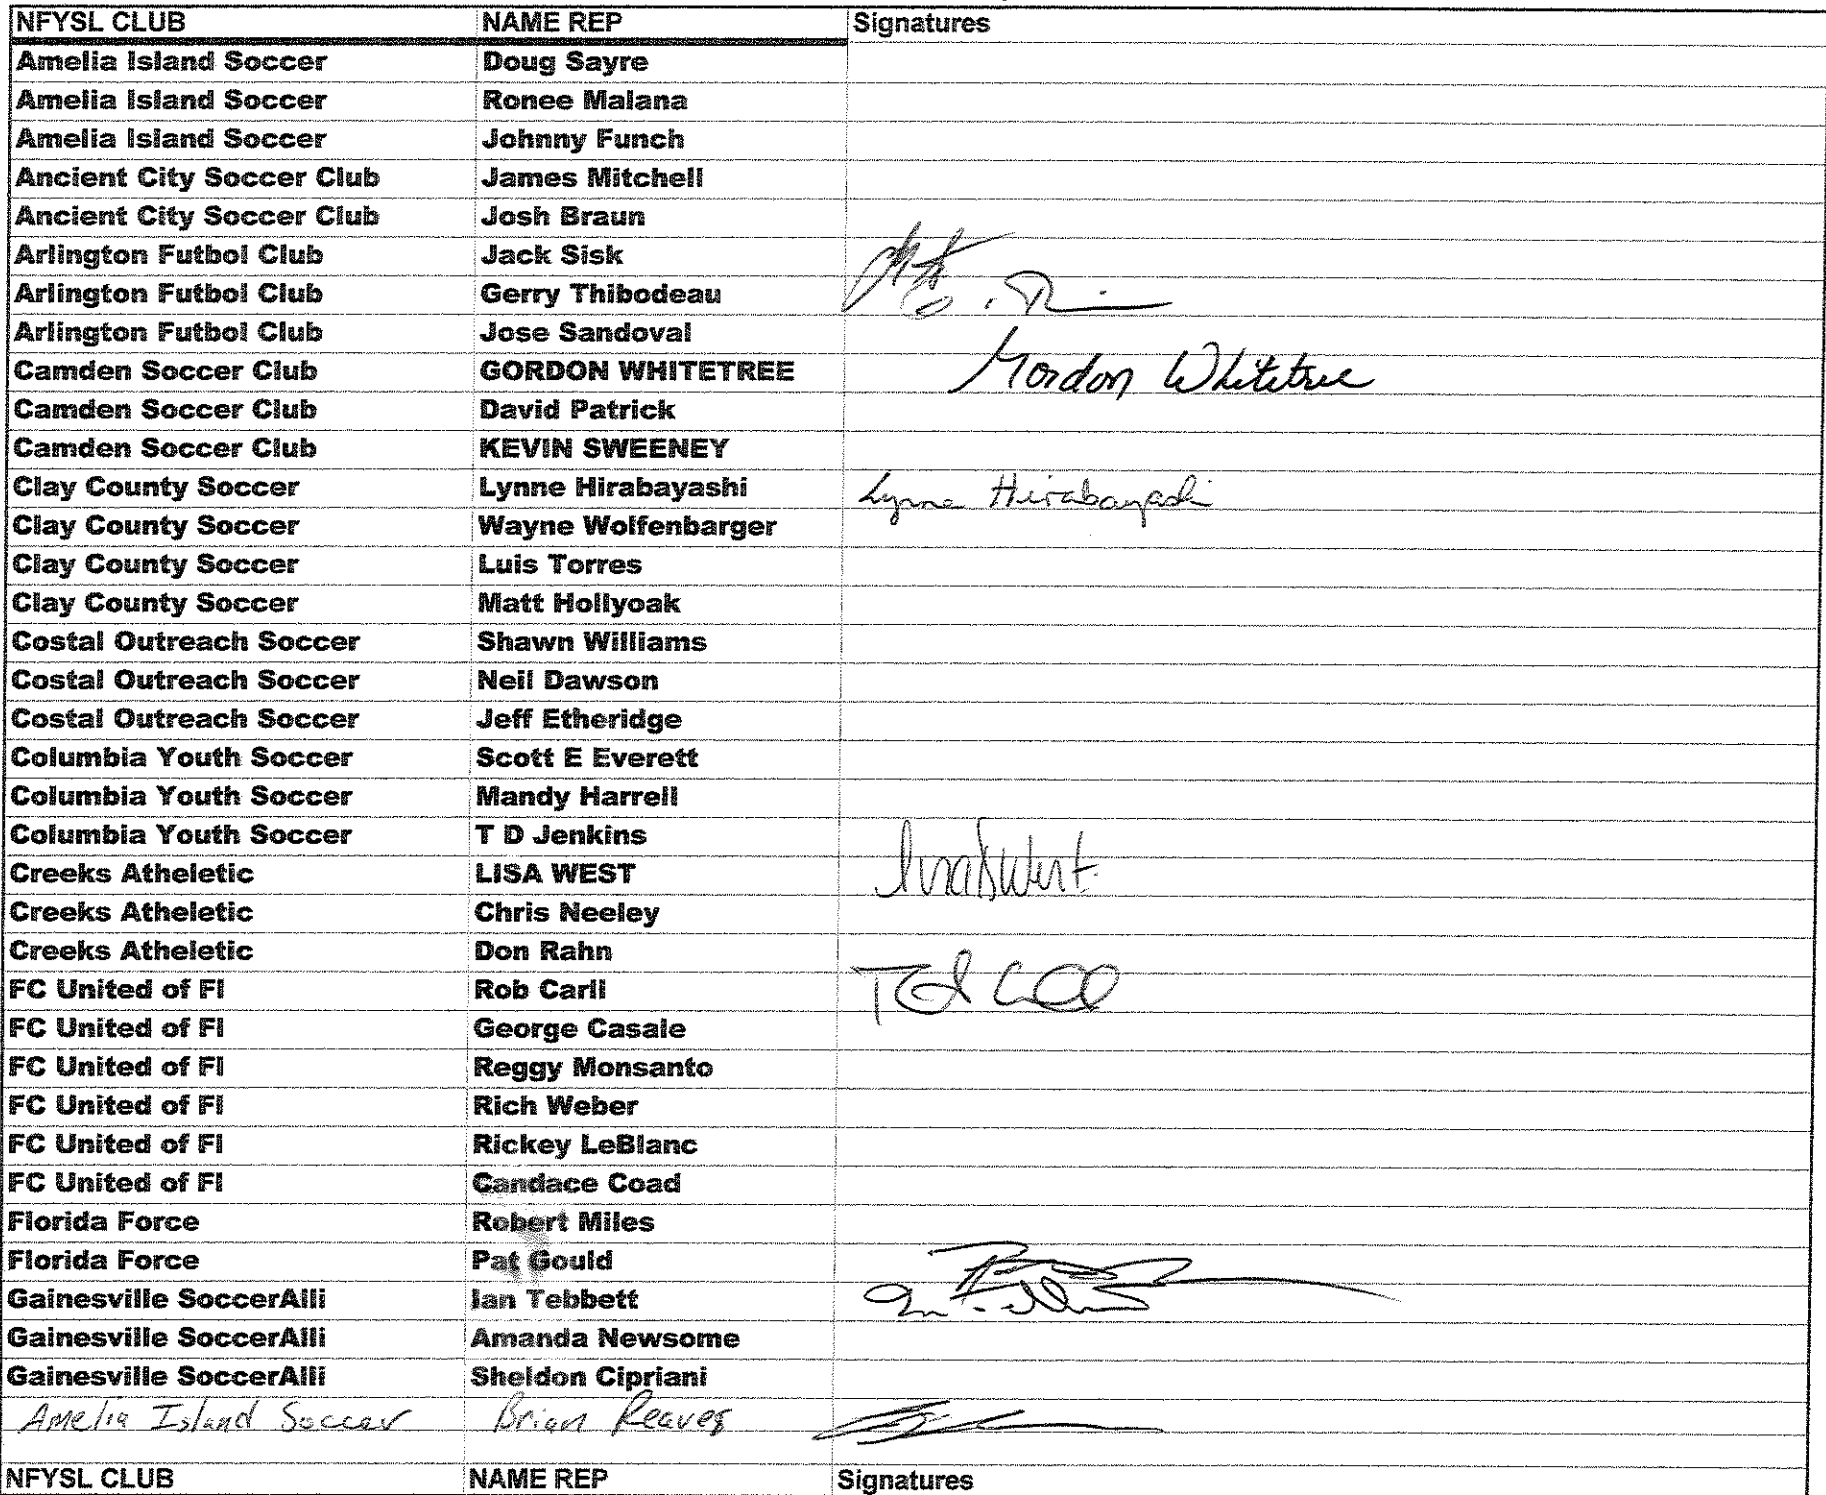 NFYSL CLUB NAME REP Signatures
Amelia Island Soccer Doug Sayre
Amelia Island Soccer Ronee Malana
Amelia Island Soccer Johnny Funch
Ancient City Soccer Club James Mitchell
Ancient City Soccer Club Josh Braun
Arlington Futbol Club Jack Sisk
Arlington Futbol Club Gerry Thibodeau
Arlington Futbol Club Jose Sandoval
Camden Soccer Club GORDON WHITETREE Gordon Whitetree
Camden Soccer Club David Patrick
Camden Soccer Club KEVIN SWEENEY
Clay County Soccer Lynne Hirabayashi Lynne Hirabayashi
Clay County Soccer Wayne Wolfenbarger
Clay County Soccer Luis Torres
Clay County Soccer Matt Hollyoak
Costal Outreach Soccer Shawn Williams
Costal Outreach Soccer Neil Dawson
Costal Outreach Soccer Jeff Etheridge
Columbia Youth Soccer Scott E Everett
Columbia Youth Soccer Mandy Harrell
Columbia Youth Soccer T D Jenkins
Creeks Atheletic LISA WEST
Creeks Atheletic Chris Neeley
Creeks Atheletic Don Rahn
FC United of Fl Rob Carll
FC United of Fl George Casale
FC United of Fl Reggy Monsanto
FC United of Fl Rich Weber
FC United of Fl Rickey LeBlanc
FC United of Fl Candace Coad
Florida Force Robert Miles
Florida Force Pat Gould
Gainesville SoccerAlli Ian Tebbett
Gainesville SoccerAlli Amanda Newsome
Gainesville SoccerAlli Sheldon Cipriani
Amelia Island Soccer Brian Reaves
NFYSL CLUB NAME REP Signatures